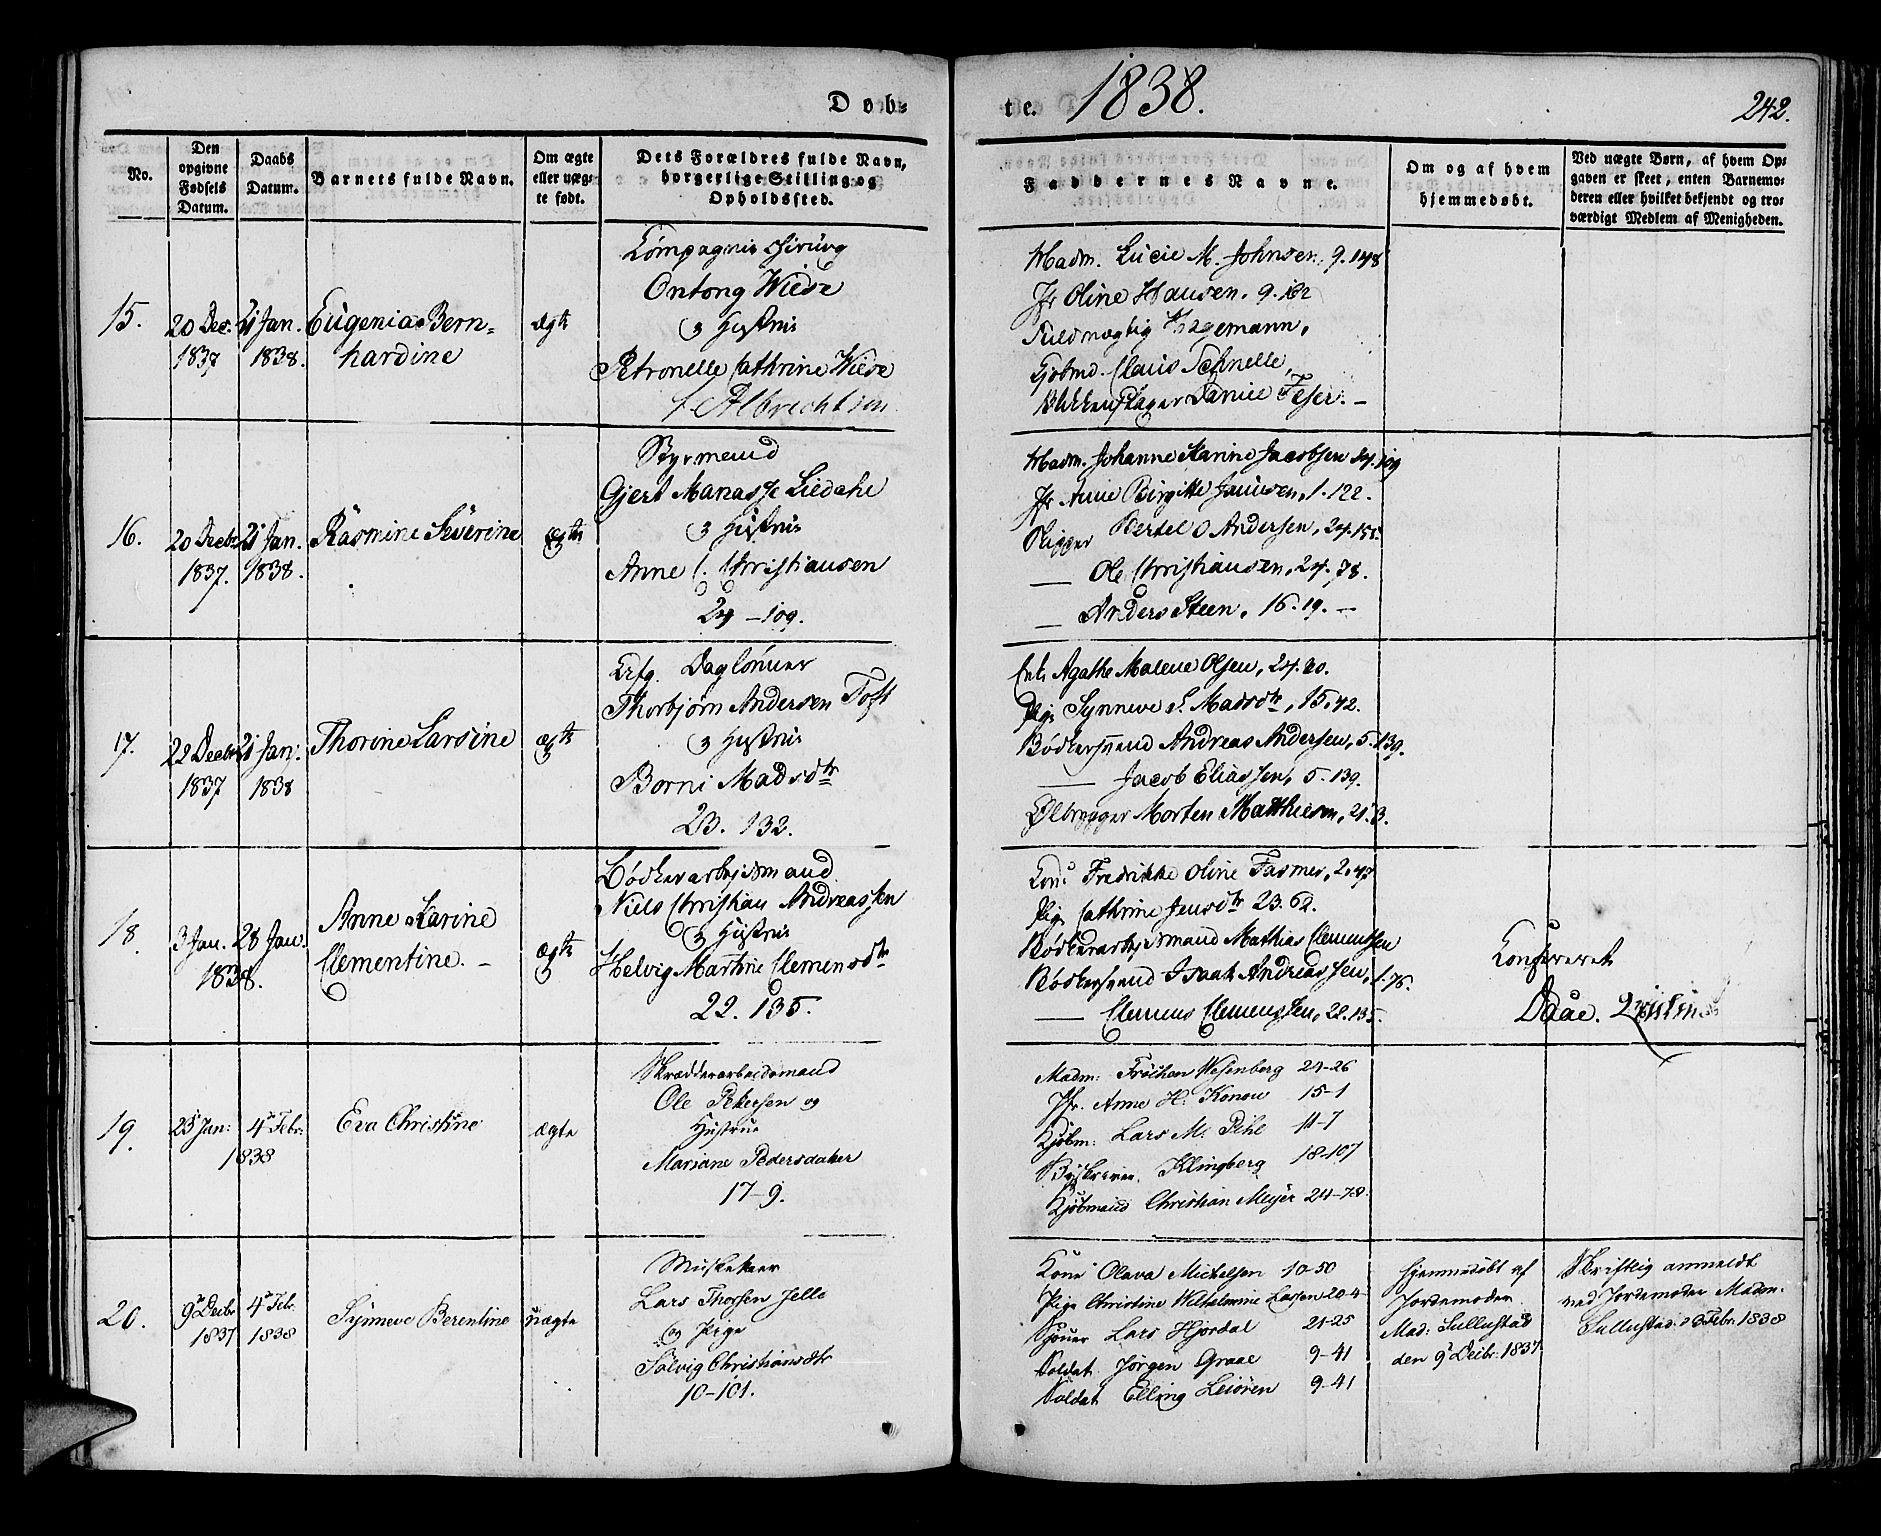 Døb-
te.
1838.
242.
No.
Den
opgivne
Fødsels
Datum.
Daabs
Datum.
Barnets fulde Navn.
Om ægte
eller uæg-
te født.
Dets Forældres fulde Navn,
borgerlige Stilling og
Opholdssted.
Faddernes Navne.
Om og af hvem
hjemmedøbt.
Ved uægte Børn, af hvem Op-
gaven er skeet, enten Barnemo-
deren eller hvilket bekjendt og tro-
værdigt Medlem af Menigheden.
15.
20 Dec.
1837
21 Jan.
1838.
Eugenia Bern-
hardine
ægte
Compagnie chirurg
Ontong Wiese
og Hustrue
Petronelle Cathrine Wiese
f. Albrechtsen
Madm. Lucie M. Johnsen, 9.148
Jfr Oline Hansen. 9.162
Fuldmægtig Hagemann,
Kjøbmd. Claus Schnelle,
Blikkenslager Daniel Feser. -
16.
20 Decbr
1837.
21 Jan.
1838.
Rasmine Severine
ægte
Styrmand
Gjert Manasse Liedahl
og Hustrue
Anne C. Christiansen
24 - 109.
Madm. Johanne Karine Jacobsen 24.109
Jfr Anne Birgitte Janssen, 1.122.
Rigger Bertel O Andersen, 24.155.
— Ole Christiansen, 24.78.
— Anders Steen, 16.19. -
17.
22 Decbr
1837
21 Jan.
1838
Thorine Larsine
ægte
Daglønner
Thorbjørn Andersen Toft
og Hustrue
Borni Madsdtr
23. 132.
Enk. Agathe Malene Olsen, 24.20.
Pig. Synneve S. Madsdtr, 15.42.
Bødkersvend Andreas Andersen, 5.139.
— Jacob Eliassen, 5.139.
Ølbrygger Morten Matthiesen, 21.3.
18.
3 Jan.
28 Jan.
1838.
Anne Karine
Clementine. -
ægte
Bødkerarbeidsmand
Niels Christian Andreassen
og Hustrue
Helvig Martine Clemensdtr
22. 135.
Kone Fredrikke Oline Fasmer, 2.47
Pig. Cathrine Jensdtr 23.62.
Bødkerarbeidsmand Mathias Clemensen
Bødkersvend Isaak Andreassen, 1.76.
— Clemens Clemensen, 22.135.
Confereret
Daae.
19.
25 Jan:
4de Febr.
1838
Eva Christine
ægte
Skrædderarbeidsmand
Ole Petersen og
Hustrue
Mariane Pedersdatter
17-9.
Madm: Frøchen Wesenberg 24-26
Jfr. Anne H. Konow 15-1
Kjøbm: Lars M. Pihl 11-7
Byskriver Klingberg 18-107
Kjøbmand Christian Meyer 24-78.
20.
9de Decbr
1837
4de Febr.
1838
Synneve Berentine
uægte
Musketeer
Lars Thorsen Jelle
og Pige
Sølvig Christiansdtr
10-101.
Kone Olava Michelsen 10-50
Pige Christine Wilhelmine Larsen 20-4
Lars Hjordal 21-25
Soldat Jørgen Graae 9-41
Soldat Elling Leiøren 9-41
Hjemmedøbt af
Jordemoder
Mad: Sullustad
den 9de Decbr. 1837
Skriftlig anmeldt
ved Jordemoder Madm.
Sullustad: 3 Febr. 1838